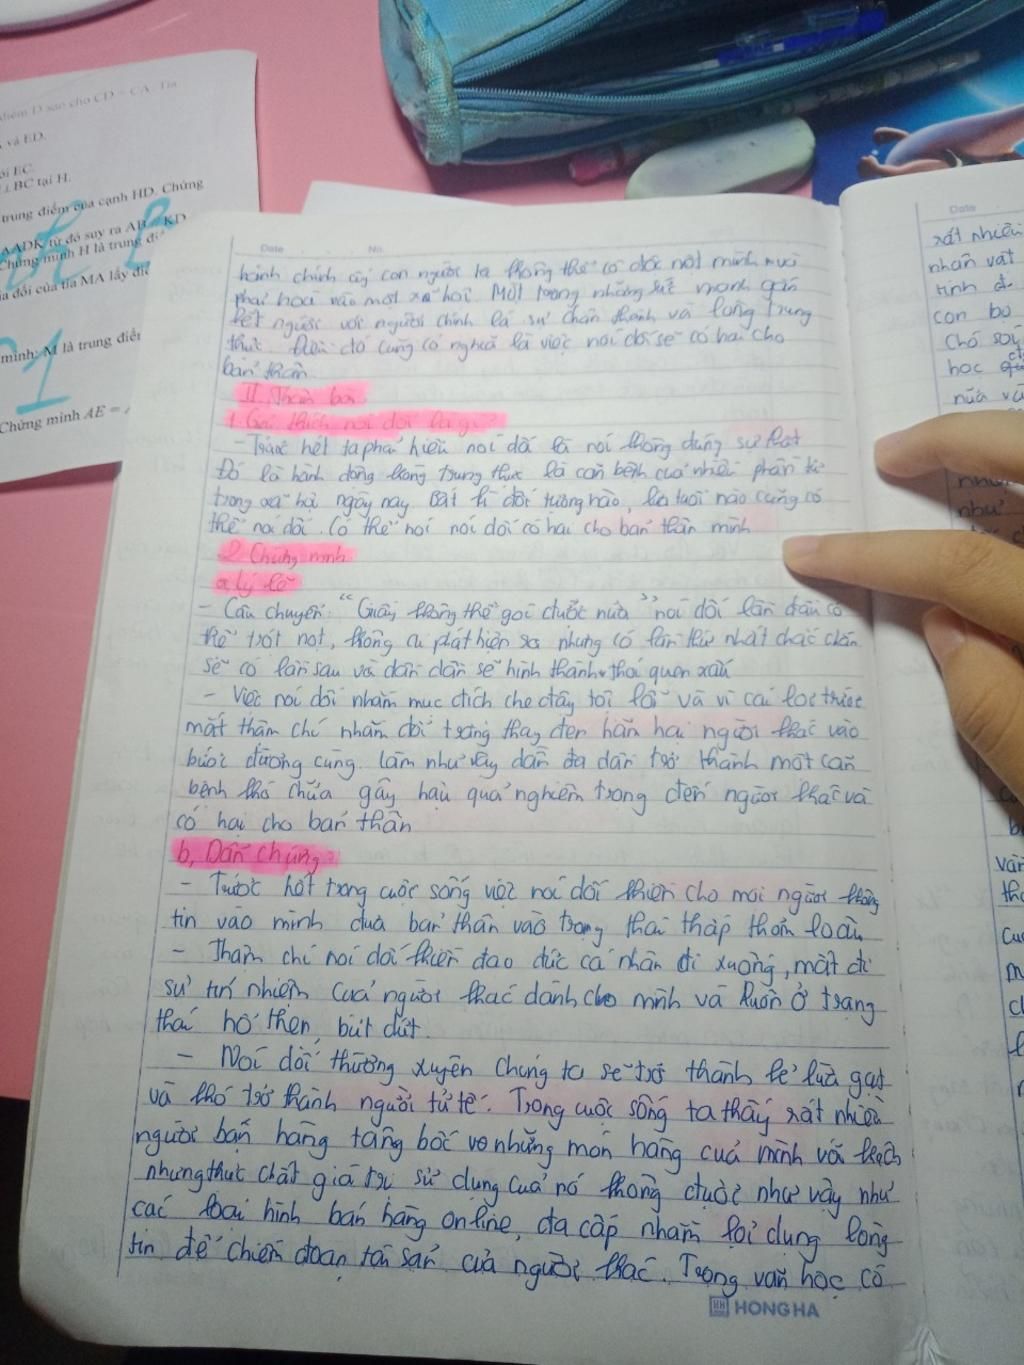 điểm D sao cho CD = CA. Tia
và ED.
EC.
BC tại H.
trung điểm của cạnh HD. Chứng
AADK từ đó suy ra AB // KD
Chứng minh H là trung
đối của tia MA lấy
minh: M là trung điểm
Chứng minh AE =
Date No.
hành chính con người ta không thể có độc một mình mà
phải hoà vào một xã hội. Một trong những mạnh gắn
kết người với người chính là sự chân thành và lòng trung
thực. Điều đó cũng có nghĩa là việc nói dối sẽ có hại cho
bản thân
II, Thân bài
1. Giải thích nói dối là gì?
- Trước hết ta phải hiểu nói dối là nói không đúng sự thật
Đó là hành động không trung thực là căn bệnh của nhiều phần tử
trong xã hội ngày nay Bất kì đối tượng nào, lứa tuổi nào cũng có
thể nói dối. Có thể nói nói dối có hại cho bản thân mình
2 Chứng minh
a, lý lẽ
- Câu chuyện: "Giấy không thể gói được nửa" nói dối lần đầu có
thể trót nọt, không ai phát hiện ra nhưng có lần thứ nhất chắc chắn
sẽ có lần sau và dần dần sẽ hình thành thói quen xấu
- Việc nói dối nhằm mục đích che đậy tội lỗi và vì cái lợi trước
mắt thậm chí nhằm đổi trắng thay đen hãm hại người khác vào
bước đường cùng. làm như vậy dần đà dần trở thành một căn
bệnh khó chữa gây hậu quả nghiêm trọng đến người khác và
có hại cho bản thân
b, Dẫn chứng:
- Trước hết trong cuộc sống việc nói dối khiến cho mọi người không
tin vào mình đưa bản thân vào trạng thái thấp thỏm lo âu
- Thậm chí nói dối khiến đạo đức cá nhân đi xuống, mất đi
sự tín nhiệm của người khác dành cho mình và luôn ở trạng
thái hổ thẹn, bứt dứt.
- Nói dối thường xuyên chúng ta sẽ trở thành kẻ lừa gạt
và khó trở thành người tử tế. Trong cuộc sống ta thấy rất nhiều
người bán hàng tâng bốc về những món hàng của mình với khách
nhưng thực chất giá trị sử dụng của nó không được như vậy như
các loại hình bán hàng online, đa cấp nhằm lợi dụng lòng
tin để chiếm đoạt tài sản của người khác. Trong văn học có
HONG HA
Date
rất nhiều
nhân vật
tinh
con bò
Chó sói
học
nữa và
như